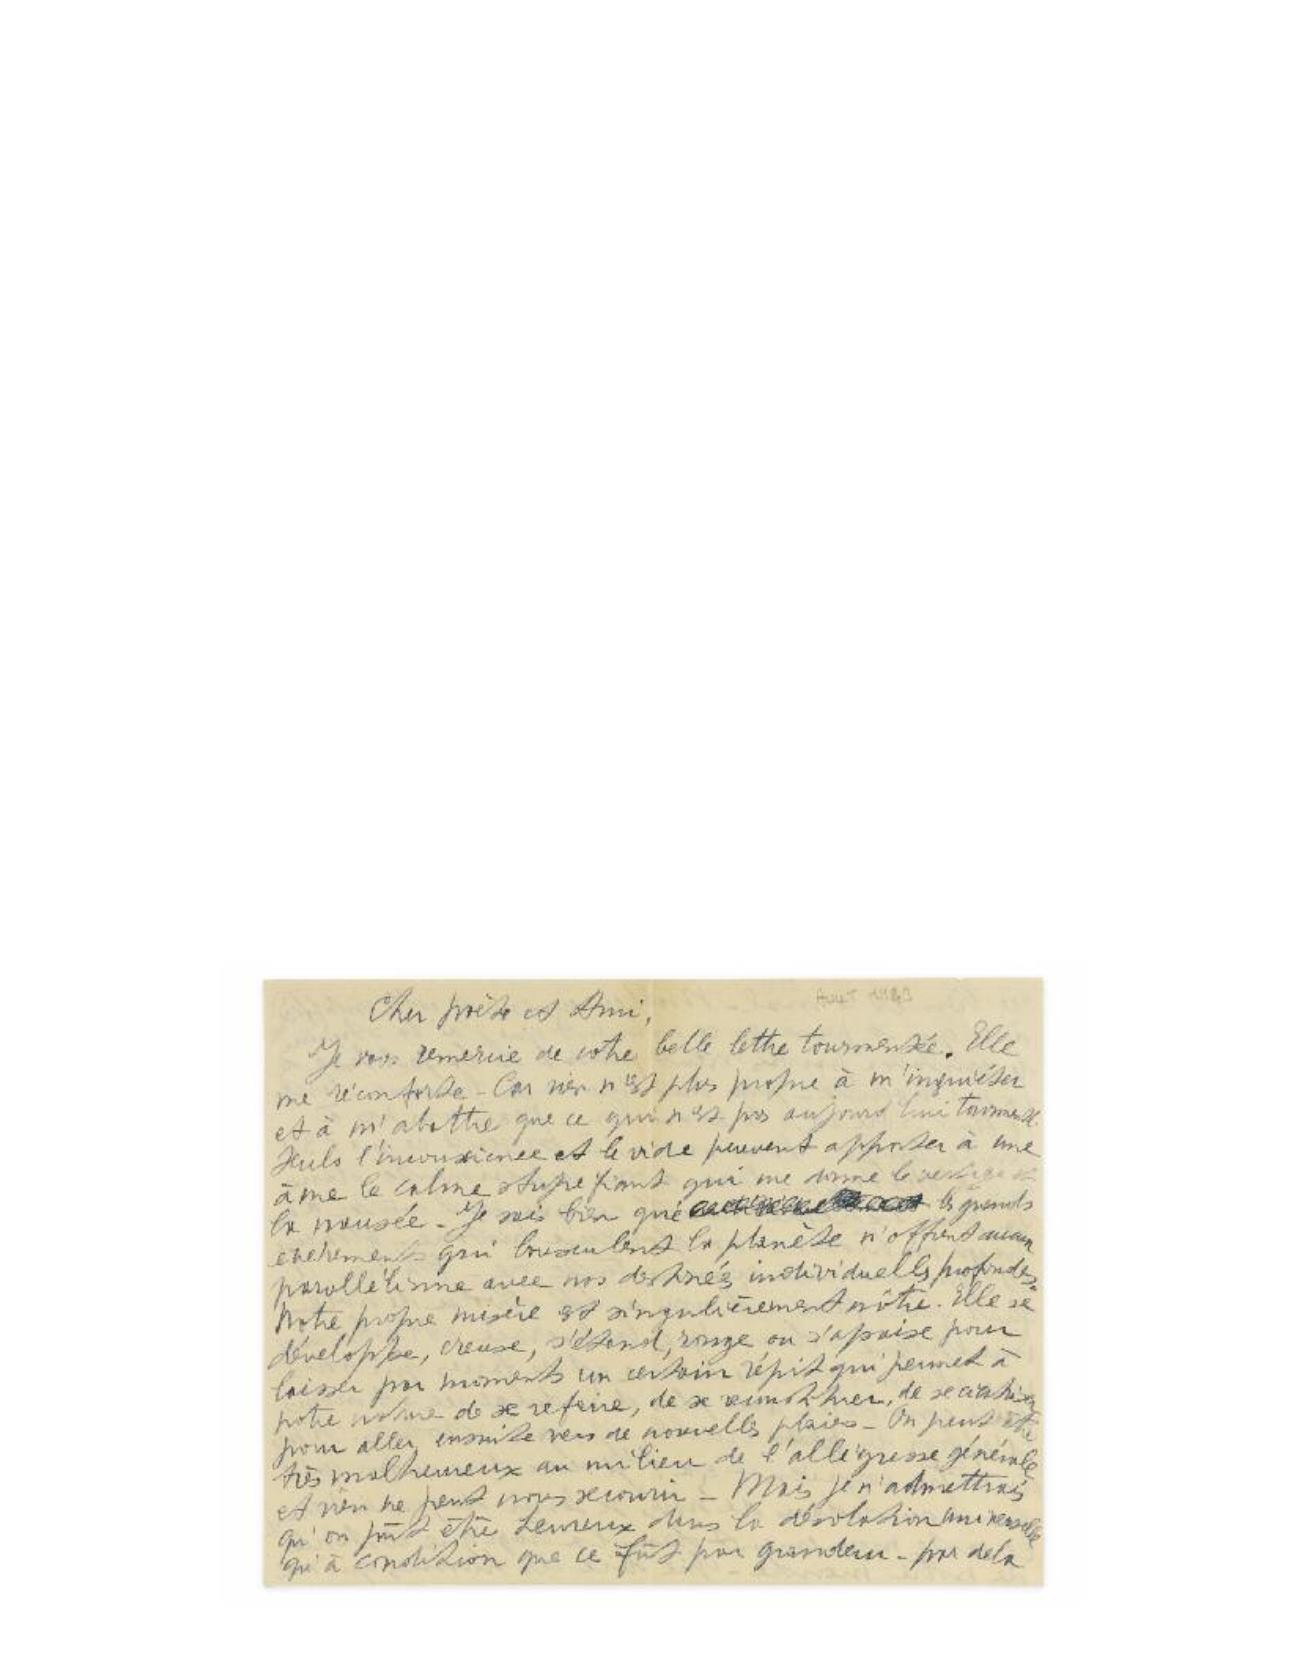 Août 1943
Cher poète et Ami,
Je vous remercie de votre belle lettre tourmentée. Elle
me réconforte - Car rien n'est plus propre à m'inquiéter
et à m'abattre que ce qui n'est pas aujourd'hui tourmenté.
Seuls l'inconscience et le vide peuvent apporter à une
âme le calme stupéfiant qui me donne le vertige et
la nausée - Je sais bien que les grands
événements qui bousculent la planète n'offrent aucun
parallélisme avec nos destinées individuelles profondes.
Notre propre misère est singulièrement nôtre. Elle se
développe, creuse, s'étend, ronge ou s'apaise pour
laisser par moments un certain répit qui permet à
notre nature de se refaire, de se de se
pour aller ensuite vers de nouvelles plaies - On peut être
très malheureux au milieu de l'allégresse générale
et rien ne peut nous secourir - Mais je n'admettrais
qu'on pût être heureux dans la désolation universelle
qu'à condition que ce fût par grandeur - par delà